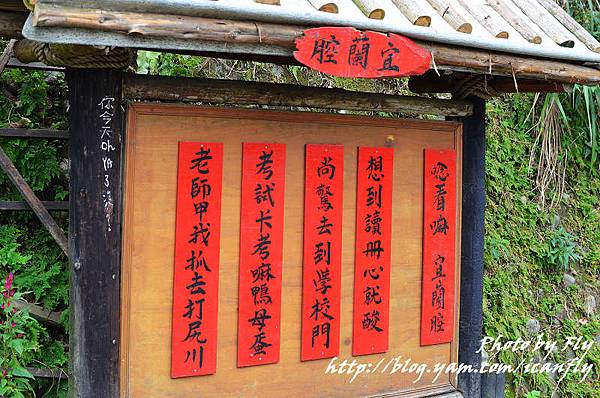 宜蘭腔
唸看嘛 宜蘭腔
想到讀冊心就酸
尚驚去到學校門
考試卡考嘛鴨母蛋
老師甲我抓去打尻川
你今天
Photo by Fly
http://blog.yam.com/icanfly